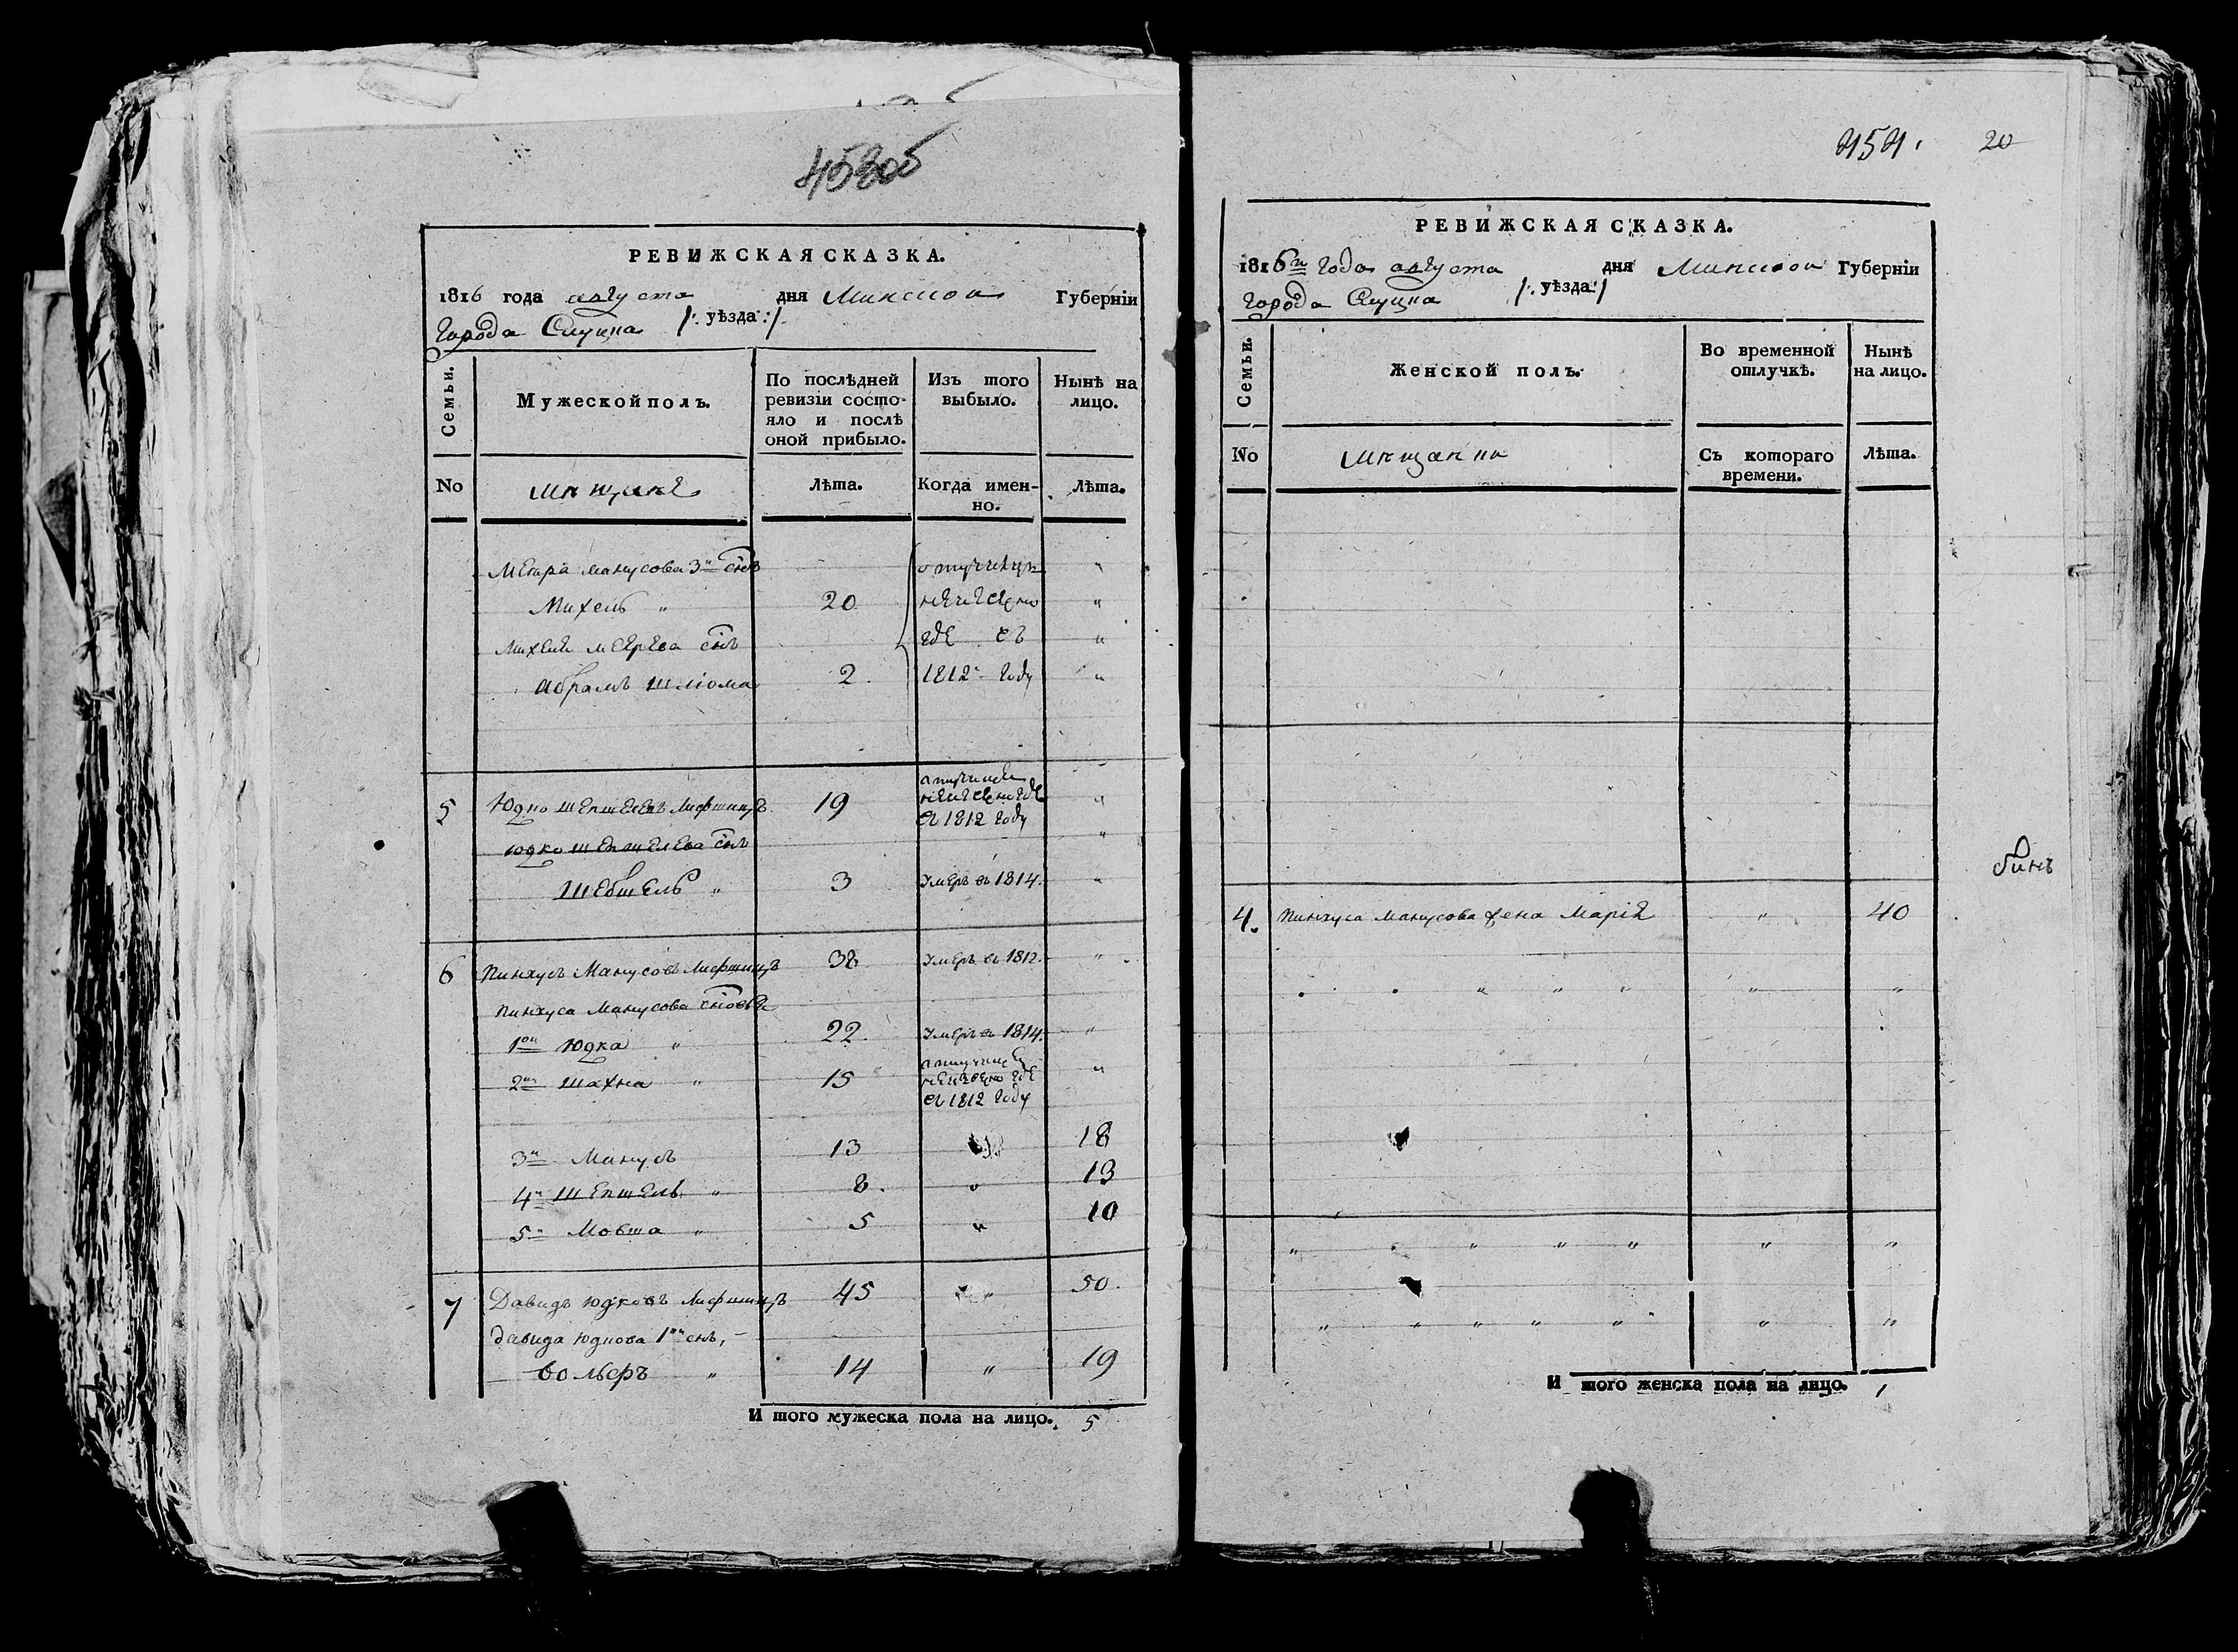 РЕВИЖСКАЯ СКАЗКА.
1816 года августа дня Минской Губерніи
города Слуцка /: уѣзда :/
Семьи.
Мужеской полъ.
По послѣдней ревизіи состо-
яло и послѣ
оной прибыло.
Изъ того
выбыло.
Нынѣ на
лицо.
No
мѣщане
лѣта.
Когда имен-
но.
лѣта.
Меера Манусова 3й сынъ отлучился "
Михель " 20 неизвестно "
Михеля Меерова сынъ где съ "
Абрамъ Шліома 2. 1812 году "
5 Юдко Шепшелевъ Лифшицъ 19 отлучился
неизвестно где
съ 1812 году "
Юдко Шепшелева сынъ "
Шебшель " 3 Умеръ въ 1814. "
6 Пинхусъ Манусовъ Лифшицъ 38 Умеръ въ 1812. "
Пинхуса Манусова сыновья
1ой Юдка " 22. Умеръ въ 1814. "
2ой Шахна " 15 отлучился
неизвестно где
съ 1812 году "
3й Манусъ 13 18
4й Шепшель " 8. " 13
5й Мовша " 5 " 10
7 Давидъ Юдковъ Лифшицъ 45 " 50.
Давида Юдкова 1ой сынъ,
Вольфъ " 14 " 19
И того мужеска пола на лицо. 5
20
РЕВИЖСКАЯ СКАЗКА.
1816го года августа дня Минской Губерніи
города Слуцка /: уѣзда :/
Семьи.
Женской полъ.
Во временной
отлучкѣ.
Нынѣ
на лицо.
No
мѣщанки
Съ котораго
времени.
лѣта.
4. Пинхуса Манусова жена Марія " 40
И того женска пола на лицо. 1